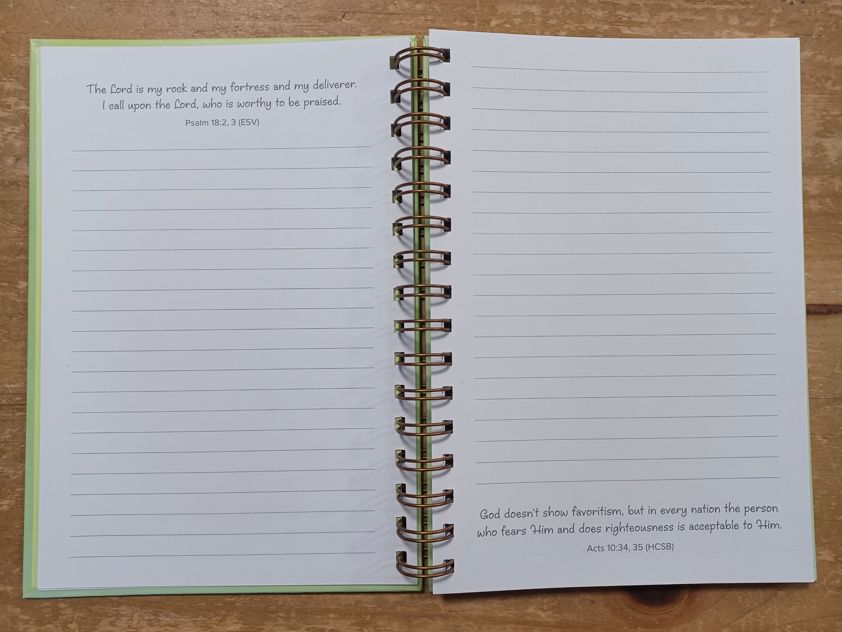 The Lord is my rock and my fortress and my deliverer.
I call upon the Lord, who is worthy to be praised.
Psalm 18:2, 3 (ESV)
God doesn't show favoritism, but in every nation the person
who fears Him and does righteousness is acceptable to Him.
Acts 10:34, 35 (HCSB)